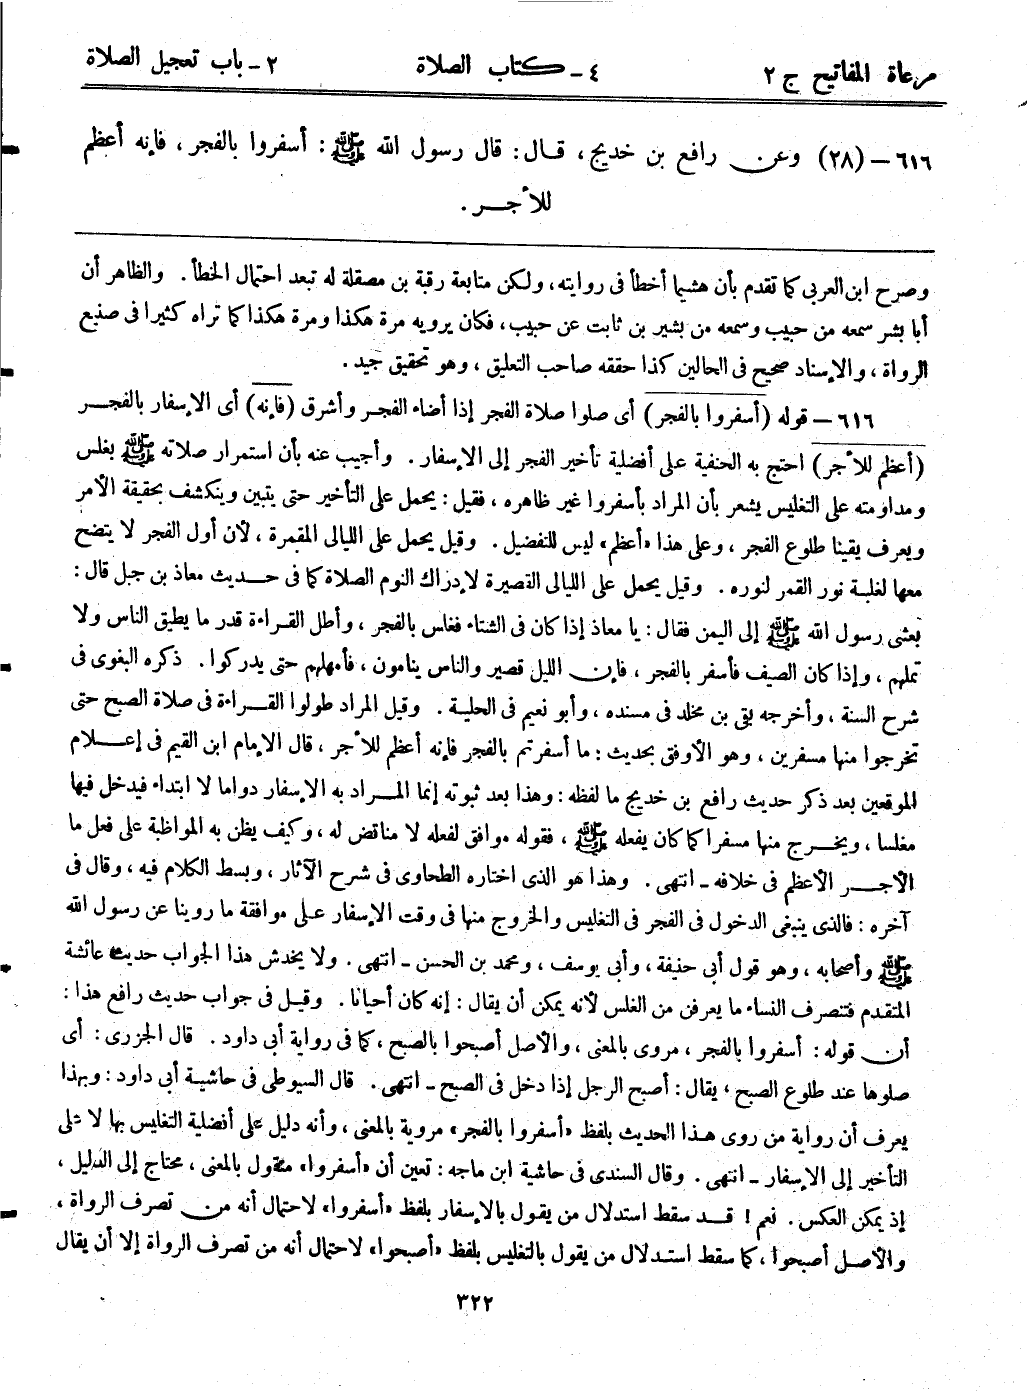 مرعاة المفاتيح ج ٢
٤ – كتاب الصلاة
٢ – باب تعجيل الصلاة
٦١٦ – (٢٨) وعن رافع بن خديج، قال: قال رسول الله ﷺ: أسفروا بالفجر، فإنه أعظم
للأجر.
وصرح ابن العربى كما تقدم بأن هشيما أخطأ فى روايته، ولكن متابعة رقبة بن مصقلة له تبعد احتمال الخطأ. والظاهر أن
أبا بشر سمعه من حبيب وسمعه من بشير بن ثابت عن حبيب، فكان يرويه مرة هكذا ومرة هكذا كما تراه كثيرا فى صنيع
الرواة، والإسناد صحيح فى الحالين كذا حققه صاحب التعليق، وهو تحقيق جيد.
٦١٦ – قوله (أسفروا بالفجر) أى صلوا صلاة الفجر إذا أضاء الفجر وأشرق (فإنه) أى الإسفار بالفجر
(أعظم للأجر) احتج به الحنفية على أفضلية تأخير الفجر إلى الإسفار. وأجيب عنه بأن استمرار صلاته ﷺ بغلس
ومداومته على التغليس يشعر بأن المراد بأسفروا غير ظاهره، فقيل: يحمل على التأخير حتى يتبين وينكشف بحقيقة الأمر
ويعرف يقينا طلوع الفجر، وعلى هذا «أعظم» ليس للتفضيل. وقيل يحمل على الليالى المقمرة، لأن أول الفجر لا يتضح
معها لغلبة نور القمر لنوره. وقيل يحمل على الليالى القصيرة لإدراك النوم الصلاة كما فى حديث معاذ بن جبل قال:
بعثنى رسول الله ﷺ إلى اليمن فقال: يا معاذ إذا كان فى الشتاء فغلس بالفجر، وأطل القراءة قدر ما يطيق الناس ولا
تملهم، وإذا كان الصيف فأسفر بالفجر، فإن الليل قصير والناس ينامون، فأمهلهم حتى يدركوا. ذكره البغوى فى
شرح السنة، وأخرجه بقى بن مخلد فى مسنده، وأبو نعيم فى الحلية. وقيل المراد طولوا القراءة فى صلاة الصبح حتى
تخرجوا منها مسفرين، وهو الأوفق بحديث: ما أسفرتم بالفجر فإنه أعظم للأجر، قال الإمام ابن القيم فى إعلام
الموقعين بعد ذكر حديث رافع بن خديج ما لفظه: وهذا بعد ثبوته إنما المراد به الإسفار دواما لا ابتداء فيدخل فيها
مغلسا، ويخرج منها مسفرا كما كان يفعله ﷺ، فقوله موافق لفعله لا مناقض له، وكيف يظن به المواظبة على فعل ما
الأجر الأعظم فى خلافه – انتهى. وهذا هو الذى اختاره الطحاوى فى شرح الآثار، وبسط الكلام فيه، وقال فى
آخره: فالذى ينبغى الدخول فى الفجر فى التغليس والخروج منها فى وقت الإسفار على موافقة ما روينا عن رسول الله
ﷺ وأصحابه، وهو قول أبى حنيفة، وأبى يوسف، ومحمد بن الحسن – انتهى. ولا يخدش هذا الجواب حديث عائشة
المتقدم فتنصرف النساء ما يعرفن من الغلس لأنه يمكن أن يقال: إنه كان أحيانا. وقيل فى جواب حديث رافع هذا:
أن قوله: أسفروا بالفجر، مروى بالمعنى، والأصل أصبحوا بالصبح، كما فى رواية أبى داود. قال الجزرى: أى
صلوها عند طلوع الصبح، يقال: أصبح الرجل إذا دخل فى الصبح – انتهى. قال السيوطى فى حاشية أبى داود: وبهذا
يعرف أن رواية من روى هذا الحديث بلفظ «أسفروا بالفجر» مروية بالمعنى، وأنه دليل على أفضلية التغليس بها لا على
التأخير إلى الإسفار – انتهى. وقال السندى فى حاشية ابن ماجه: تعين أن «أسفروا» منقول بالمعنى، محتاج إلى الدليل،
إذ يمكن العكس. نعم! قد سقط استدلال من يقول بالإسفار بلفظ «أسفروا» لاحتمال أنه من تصرف الرواة،
والأصل أصبحوا، كما سقط استدلال من يقول بالتغليس بلفظ «أصبحوا» لاحتمال أنه من تصرف الرواة إلا أن يقال
٣٢٢